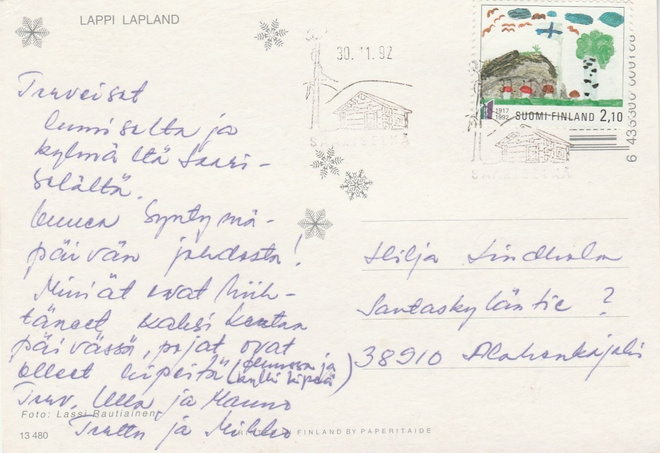 LAPPI LAPLAND
30.11.92
1917
1992
SUOMI-FINLAND 2,10
Terveiset
lumiselta ja
kylmältä Saari-
selältä.
Synty mä-
päivän johdosta!
Miniät ovat hiih-
täneet kaksi kertaa
päivässä, pojat ovat
olleet kipeitä (
kipeä)
Terv. Ulla ja Hannu
Terttu ja Mikko
Hilja Lindholm
Santaskyläntie ?
38910 Alahonkajoki
Foto: Lassi Rautiainen
13 480
IN FINLAND BY PAPERITAIDE